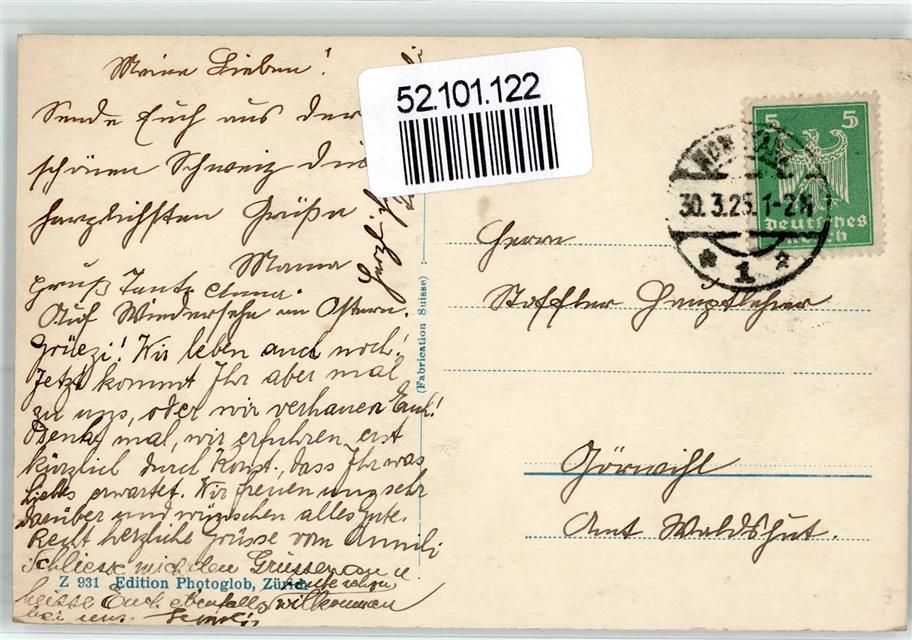 Meine Lieben!
Sende Euch aus der
schönen Schweiz die
herzlichsten Grüße
Mama
Gruß Tante Anna
Auf Wiedersehn an Ostern.
Grüezi! Wir leben auch noch!
Jetzt kommt Ihr aber mal
zu uns, oder wir verhauen Euch!
Denkt mal, wir erfuhren erst
kürzlich durch Konst., dass Ihr was
Liebes erwartet. Wir freuen uns sehr
darüber und wünschen alles gute.
Recht herzliche Grüsse von Anneli
Schliesse mich den Grüssen an u.
heisse Euch ebenfalls willkommen
bei uns.
Z 931 Edition Photoglob, Zürich
(Fabrication Suisse)
52.101.122
5 5
Deutsches
Reich
30.3.25. 1-2N
* 1 2
Herrn
Stoffler Hauptlehrer
Görwihl
Amt Waldshut.